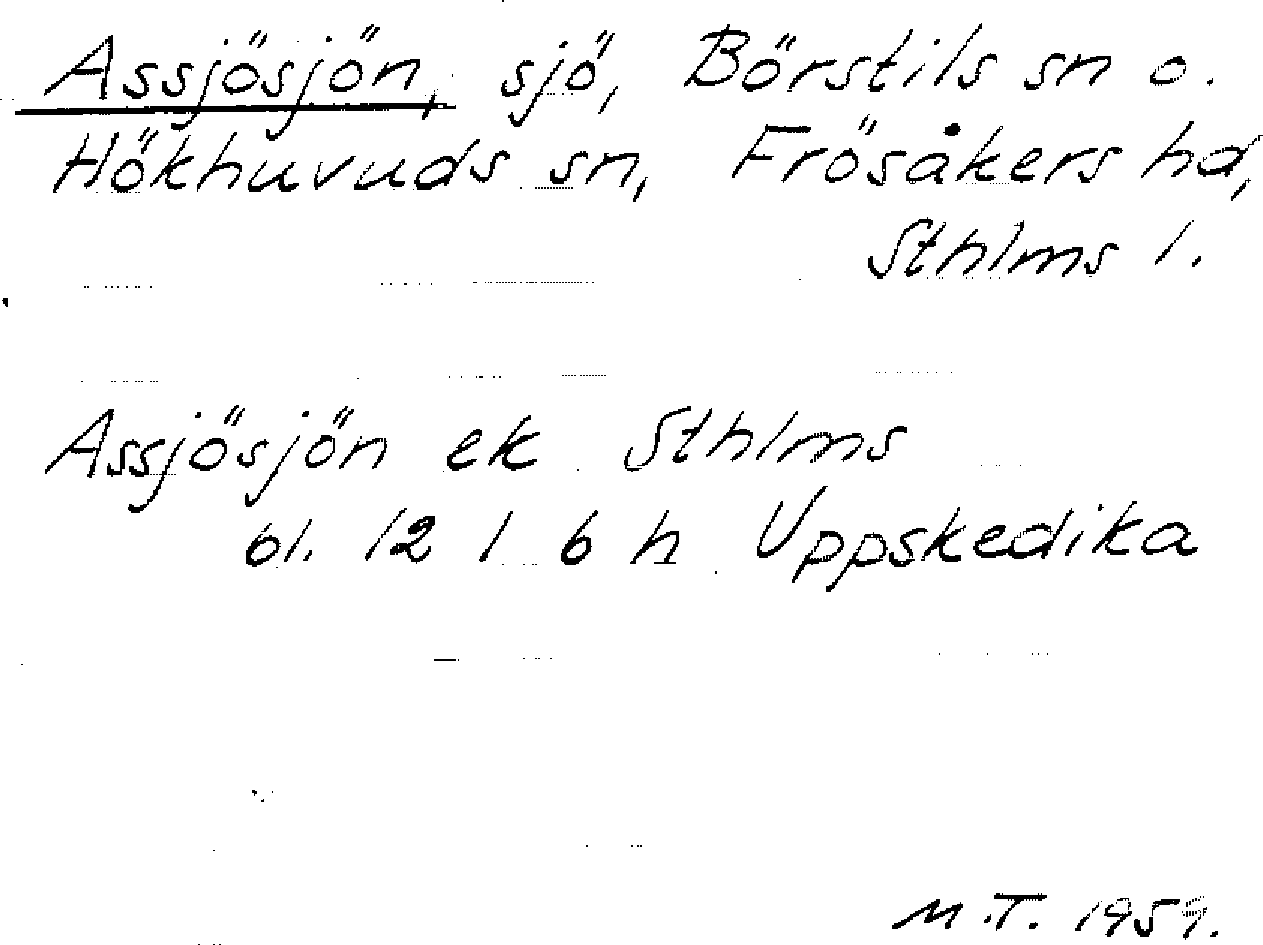 Assjösjön, sjö, Börstils sn o.
Hökhuvuds sn, Frösåkers hd,
Sthlms l.
Assjösjön ek Sthlms
bl. 12 1 6 h Uppskedika
M.T. 1959.